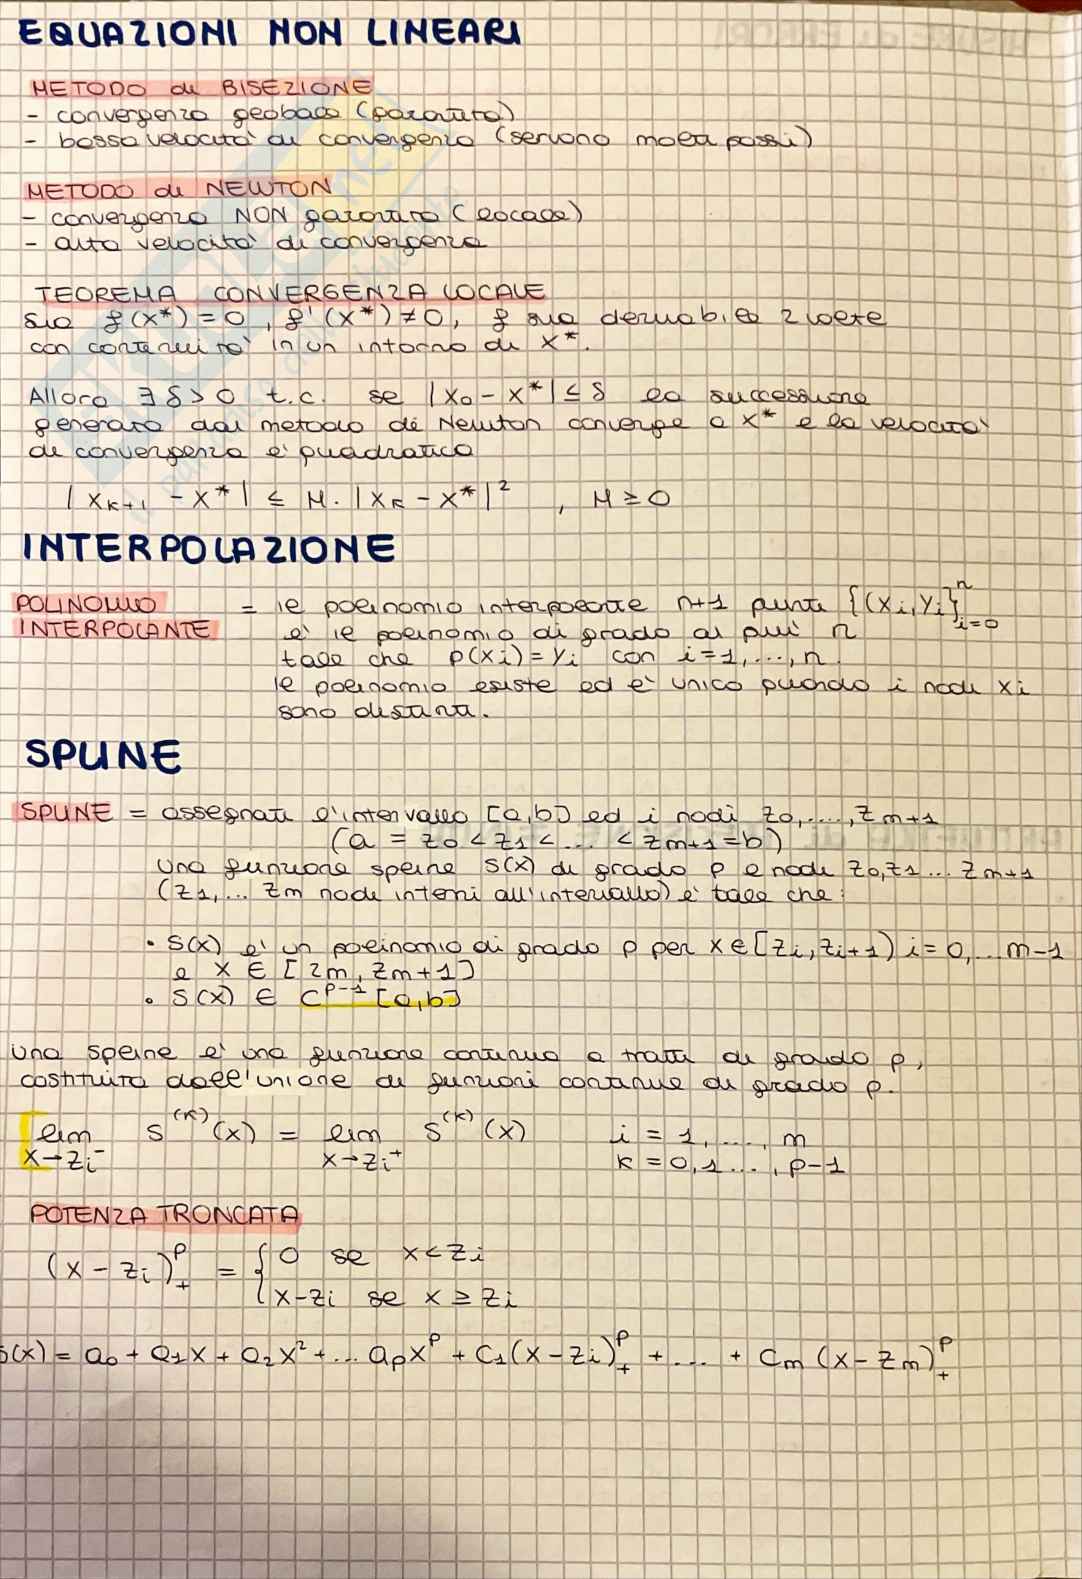 EQUAZIONI NON LINEARI
METODO di BISEZIONE
- convergenza globale (garantita)
- bassa velocità di convergenza (servono molti passi)
METODO di NEWTON
- convergenza NON garantita (locale)
- alta velocità di convergenza
TEOREMA CONVERGENZA LOCALE
Sia f(x*) = 0, f'(x*) ≠ 0, f sia derivabile 2 volte
con continuità in un intorno di x*.
Allora ∃ δ > 0 t.c. se |x₀ - x*| ≤ δ la successione
generata dal metodo di Newton converge a x* e la velocità
di convergenza è quadratica
|xₖ₊₁ - x*| ≤ M · |xₖ - x*|² , M ≥ 0
INTERPOLAZIONE
POLINOMIO INTERPOLANTE = il polinomio interpolante n+1 punti {(xi,yi}ⁿi=0
è il polinomio di grado al più n
tale che p(xi) = yi con i = 1, ..., n.
il polinomio esiste ed è unico quando i nodi xi
sono distinti.
SPLINE
SPLINE = assegnati l'intervallo [a,b] ed i nodi z₀,....,zm+1
(a = z₀ < z₁ < ... < zm+1 = b)
una funzione spline S(x) di grado p e nodi z₀,z₁ ... zm+1
(z₁,... zm nodi interni all'intervallo) è tale che:
• S(x) è un polinomio di grado p per x ∈ [zi, zi+1) i = 0,... m-1
e x ∈ [zm, zm+1]
• S(x) ∈ Cᵖ⁻¹ [a,b]
una spline è una funzione continua a tratti di grado p,
costituita dall'unione di funzioni continue di grado p.
lim x→zi⁻ S⁽ᵏ⁾(x) = lim x→zi⁺ S⁽ᵏ⁾(x) i = 1, ..., m
k = 0,1 ..., p-1
POTENZA TRONCATA
(x - zi)ᵖ₊ = { 0 se x < zi
x-zi se x ≥ zi
s(x) = a₀ + a₁x + a₂x² + ... apxᵖ + c₁(x - zi)ᵖ₊ + ... + cm (x - zm)ᵖ₊